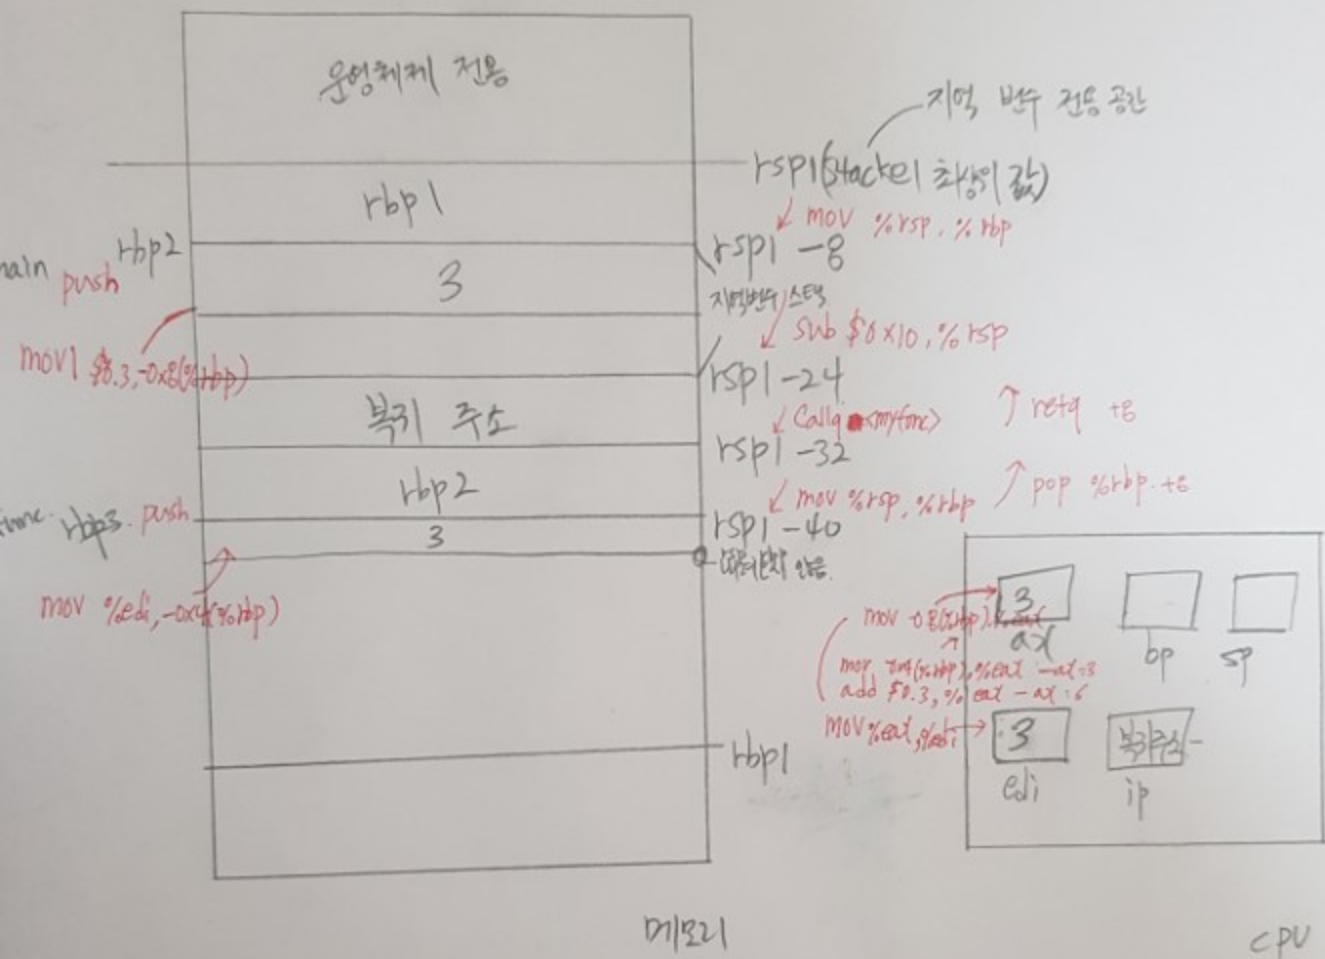 운영체제 전용
지역 변수 전용 공간
rsp1(stack의 최상위 값)
rbp1
mov %rsp, %rbp
rbp2
rsp1 -8
main push
3
지역변수 스택
sub $0x10, %rsp
movl $0.3, -0x8(%rbp)
rsp1 -24
복귀 주소
callq <myfunc>
retq +8
rsp1 -32
rbp2
mov %rsp, %rbp
pop %rbp. +8
func. rbp3. push
rsp1 -40
3
않음.
mov %edi, -0x4(%rbp)
3
ax
bp
sp
mov -08(%rbp), %eax
mov (%rbp), %eax -ax=3
add $0.3, %eax - ax:6
mov %eax, %edi
3
edi
복귀주소
ip
rbp1
메모리
CPU